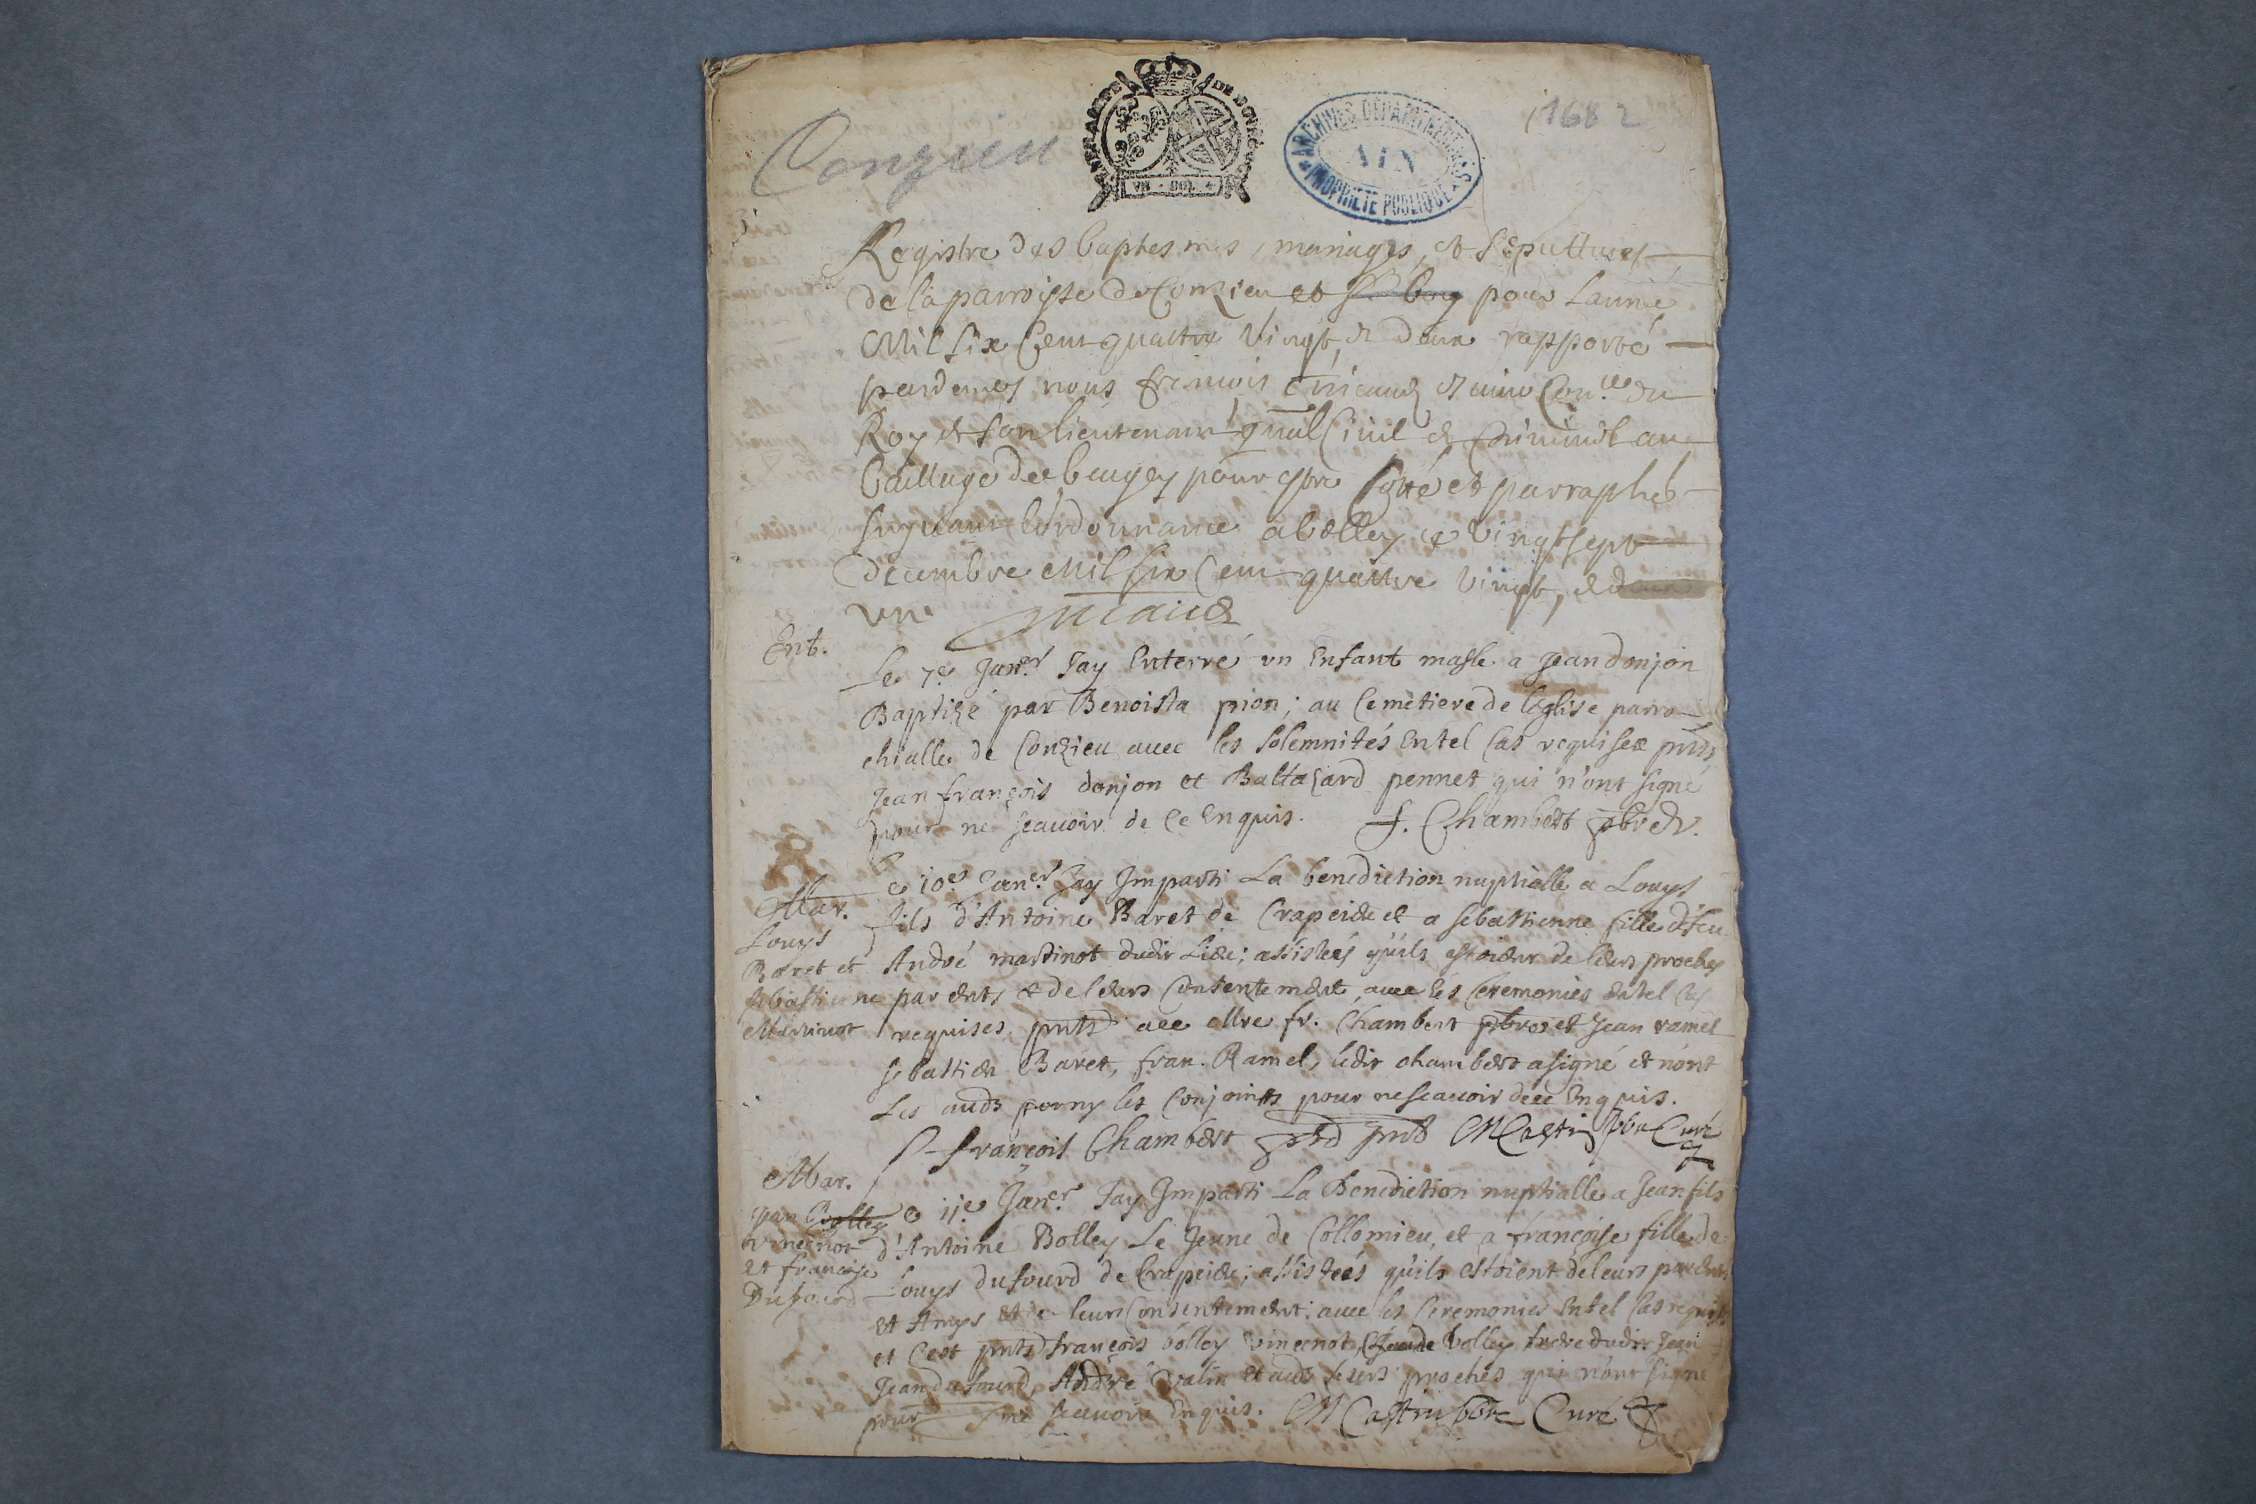 Conzieu
1682
UN SOL
ARCHIVES DEPARTEMENTALES
AIN
PROPRIETE PUBLIQUE
Registre des baptesmes, mariages, et sepultures
de la parroisse de Conzieu et pour Lannée
Mil six Cent quattre vingt, et deux rapporté
pardeuant nous francois du
Roy et son lieutenant gnal Ciuil et Criminel au
bailliage de bugey pour estre cotté et parraphé
suyuant l'ordonnance a belley ce vingt sept
decembre Mil six Cent quattre vingt, et
un
Ent.
Le 7e Janer Jay Enterré un Enfant masle a Jean donjon
Baptizé par Benoista pion; au Cemetiere de léglise parro
chialle de Conzieu auec les solemnités En tel Cas requises pnts
Jean françois donjon et Baltazard pennet qui n'ont signé
pour ne sçauoir de ce Enquis. f. Chambert
Mar.
Louys
Baret et
sebastienne
Martinot
Le 10e Janer Jay Imparti La benediction nuptialle a Louys
fils d'Antoine Baret de Crapeide et a sebastienne fille d'feu
André martinot dudit Lieu; assistées qu'ils estoient de leurs proches
parents et de leurs Consentement auec les Ceremonies En tel Cas
requises pnts Mre fr. Chambert pbre et Jean ramel
sebastien Baret, fran. Ramel, ledit Chambert a signé et n'ont
Les les Conjoints pour ne scauoir de ce Enquis.
françois Chambert pnt Castin pbre Curé
Mar.
Jean Bolley
vinernot
et françoise
Dufourd
Le 11e Janer Jay Imparti La Benediction nuptialle a Jean fils
d'Antoine Bolley Le Jeune de Collomieu, et a françoise fille de
Louys dufourd de Crapeide; assistées qu'ils estoient de leurs parents
et Amys et de leurs Consentement: auec les Ceremonies En tel Cas requises
et Cest pnts françois bolley vinernot, Claude bolley frere dudit Jean
Jean dufourd, André et leurs proches qui n'ont signé
pour ne scauoir Enquis. Castin pbre Curé